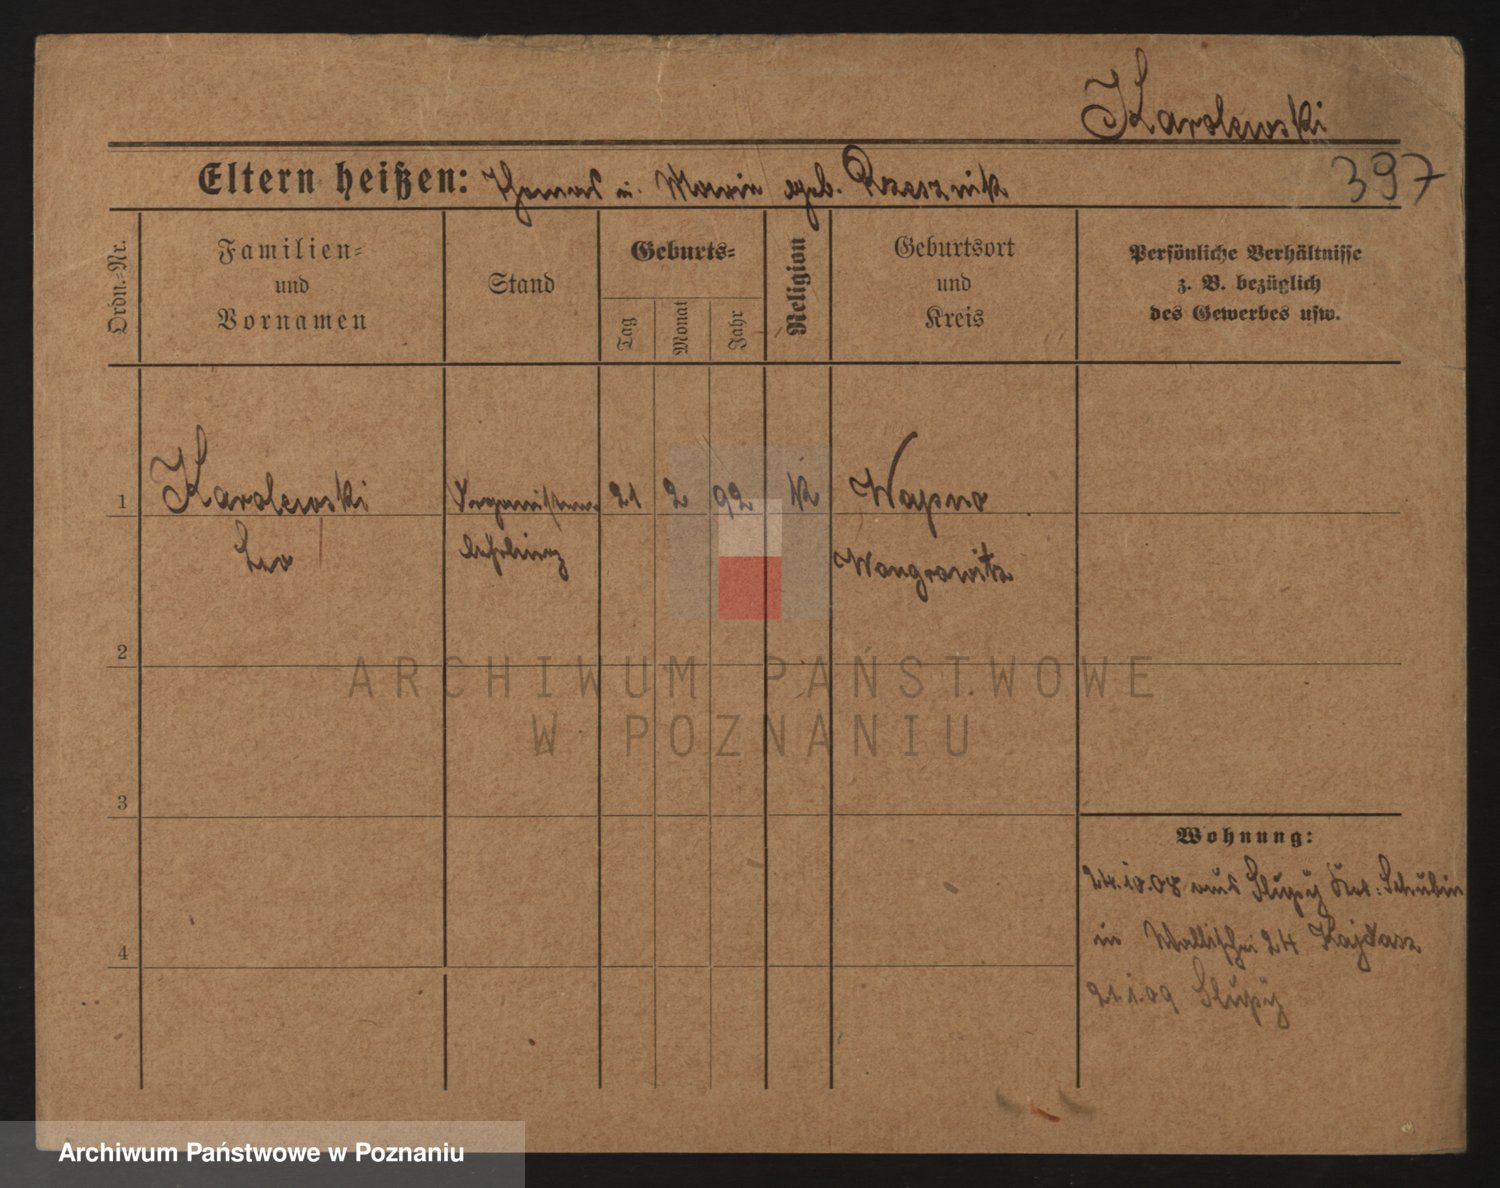 Karolewski
397
Eltern heißen: Thomas u. Maria geb. Rzesznik
Ordn.=Nr.
Familien=
und
Vornamen
Stand
Geburts=
Tag
Monat
Jahr
Religion
Geburtsort
und
Kreis
Persönliche Verhältnisse
z. B. bezüglich
des Gewerbes usw.
1 Karolewski Organisten 21 2 92 K Wapno
Leo lehrling Wongrowitz
2
3
4
Wohnung:
24.10.08 aus Slupy Krs: Schubin
in Wallischei 24 Kajdasz
21.1.09 Slupy
ARCHIWUM PAŃSTWOWE
W POZNANIU
Archiwum Państwowe w Poznaniu